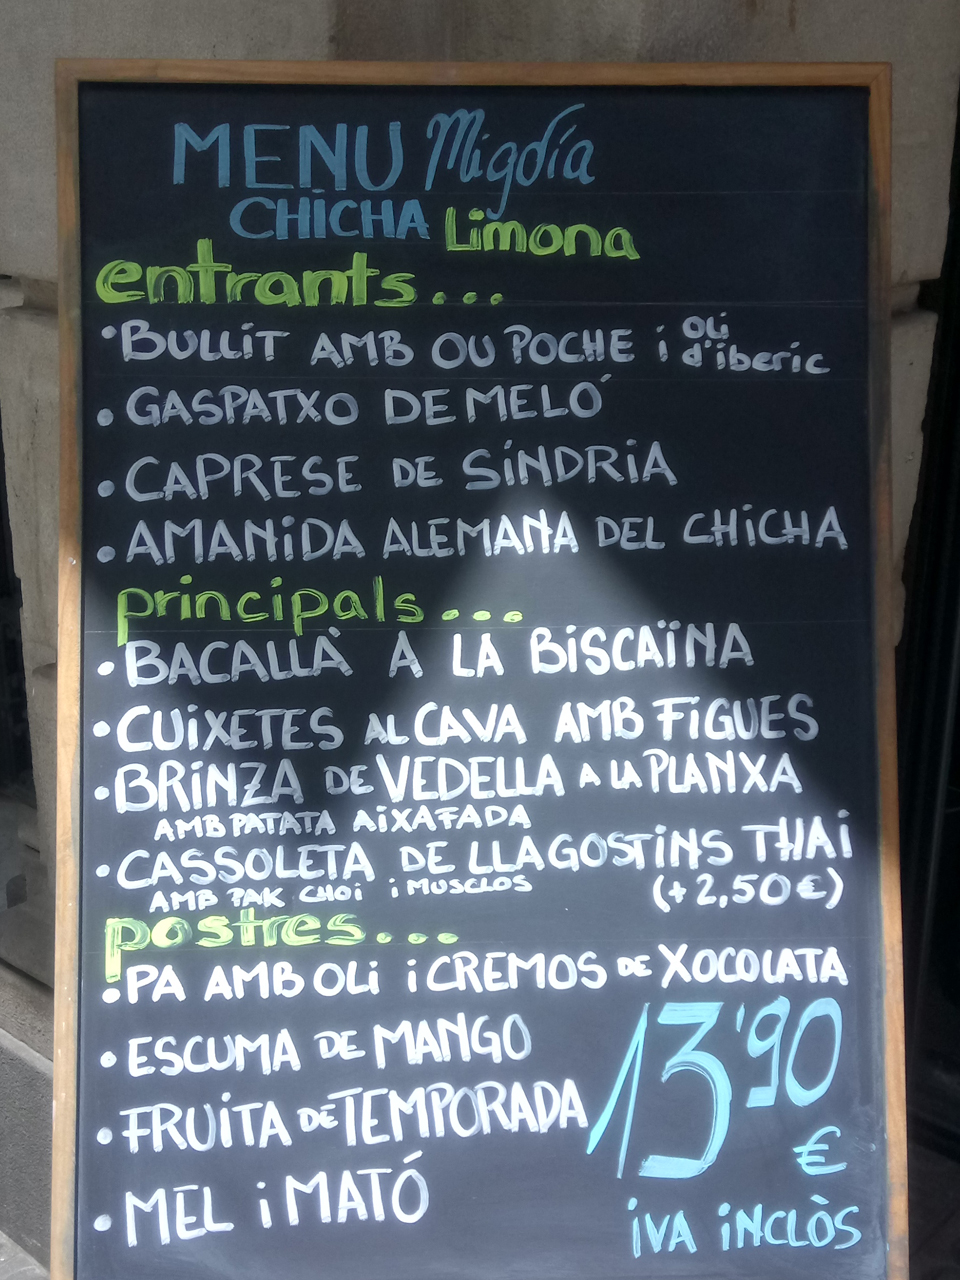 MENU Migdía
CHICHA Limona
entrants...
• BULLIT AMB OU POCHE i OLi d'iberic
• GASPATXO DE MELÓ
• CAPRESE DE SÍNDRIA
• AMANIDA ALEMANA DEL CHICHA
principals...
• BACALLÀ A LA BISCAÏNA
• CUIXETES AL CAVA AMB FIGUES
• BRINZA DE VEDELLA A LA PLANXA
AMB PATATA AIXAFADA
• CASSOLETA DE LLAGOSTINS THAI
AMB PAK CHOI i MUSCLOS (+2,50€)
postres...
• PA AMB OLI i CREMOS DE XOCOLATA
• ESCUMA DE MANGO
• FRUITA DE TEMPORADA
• MEL i MATÓ
13'90
€
iVA iNCLÒS